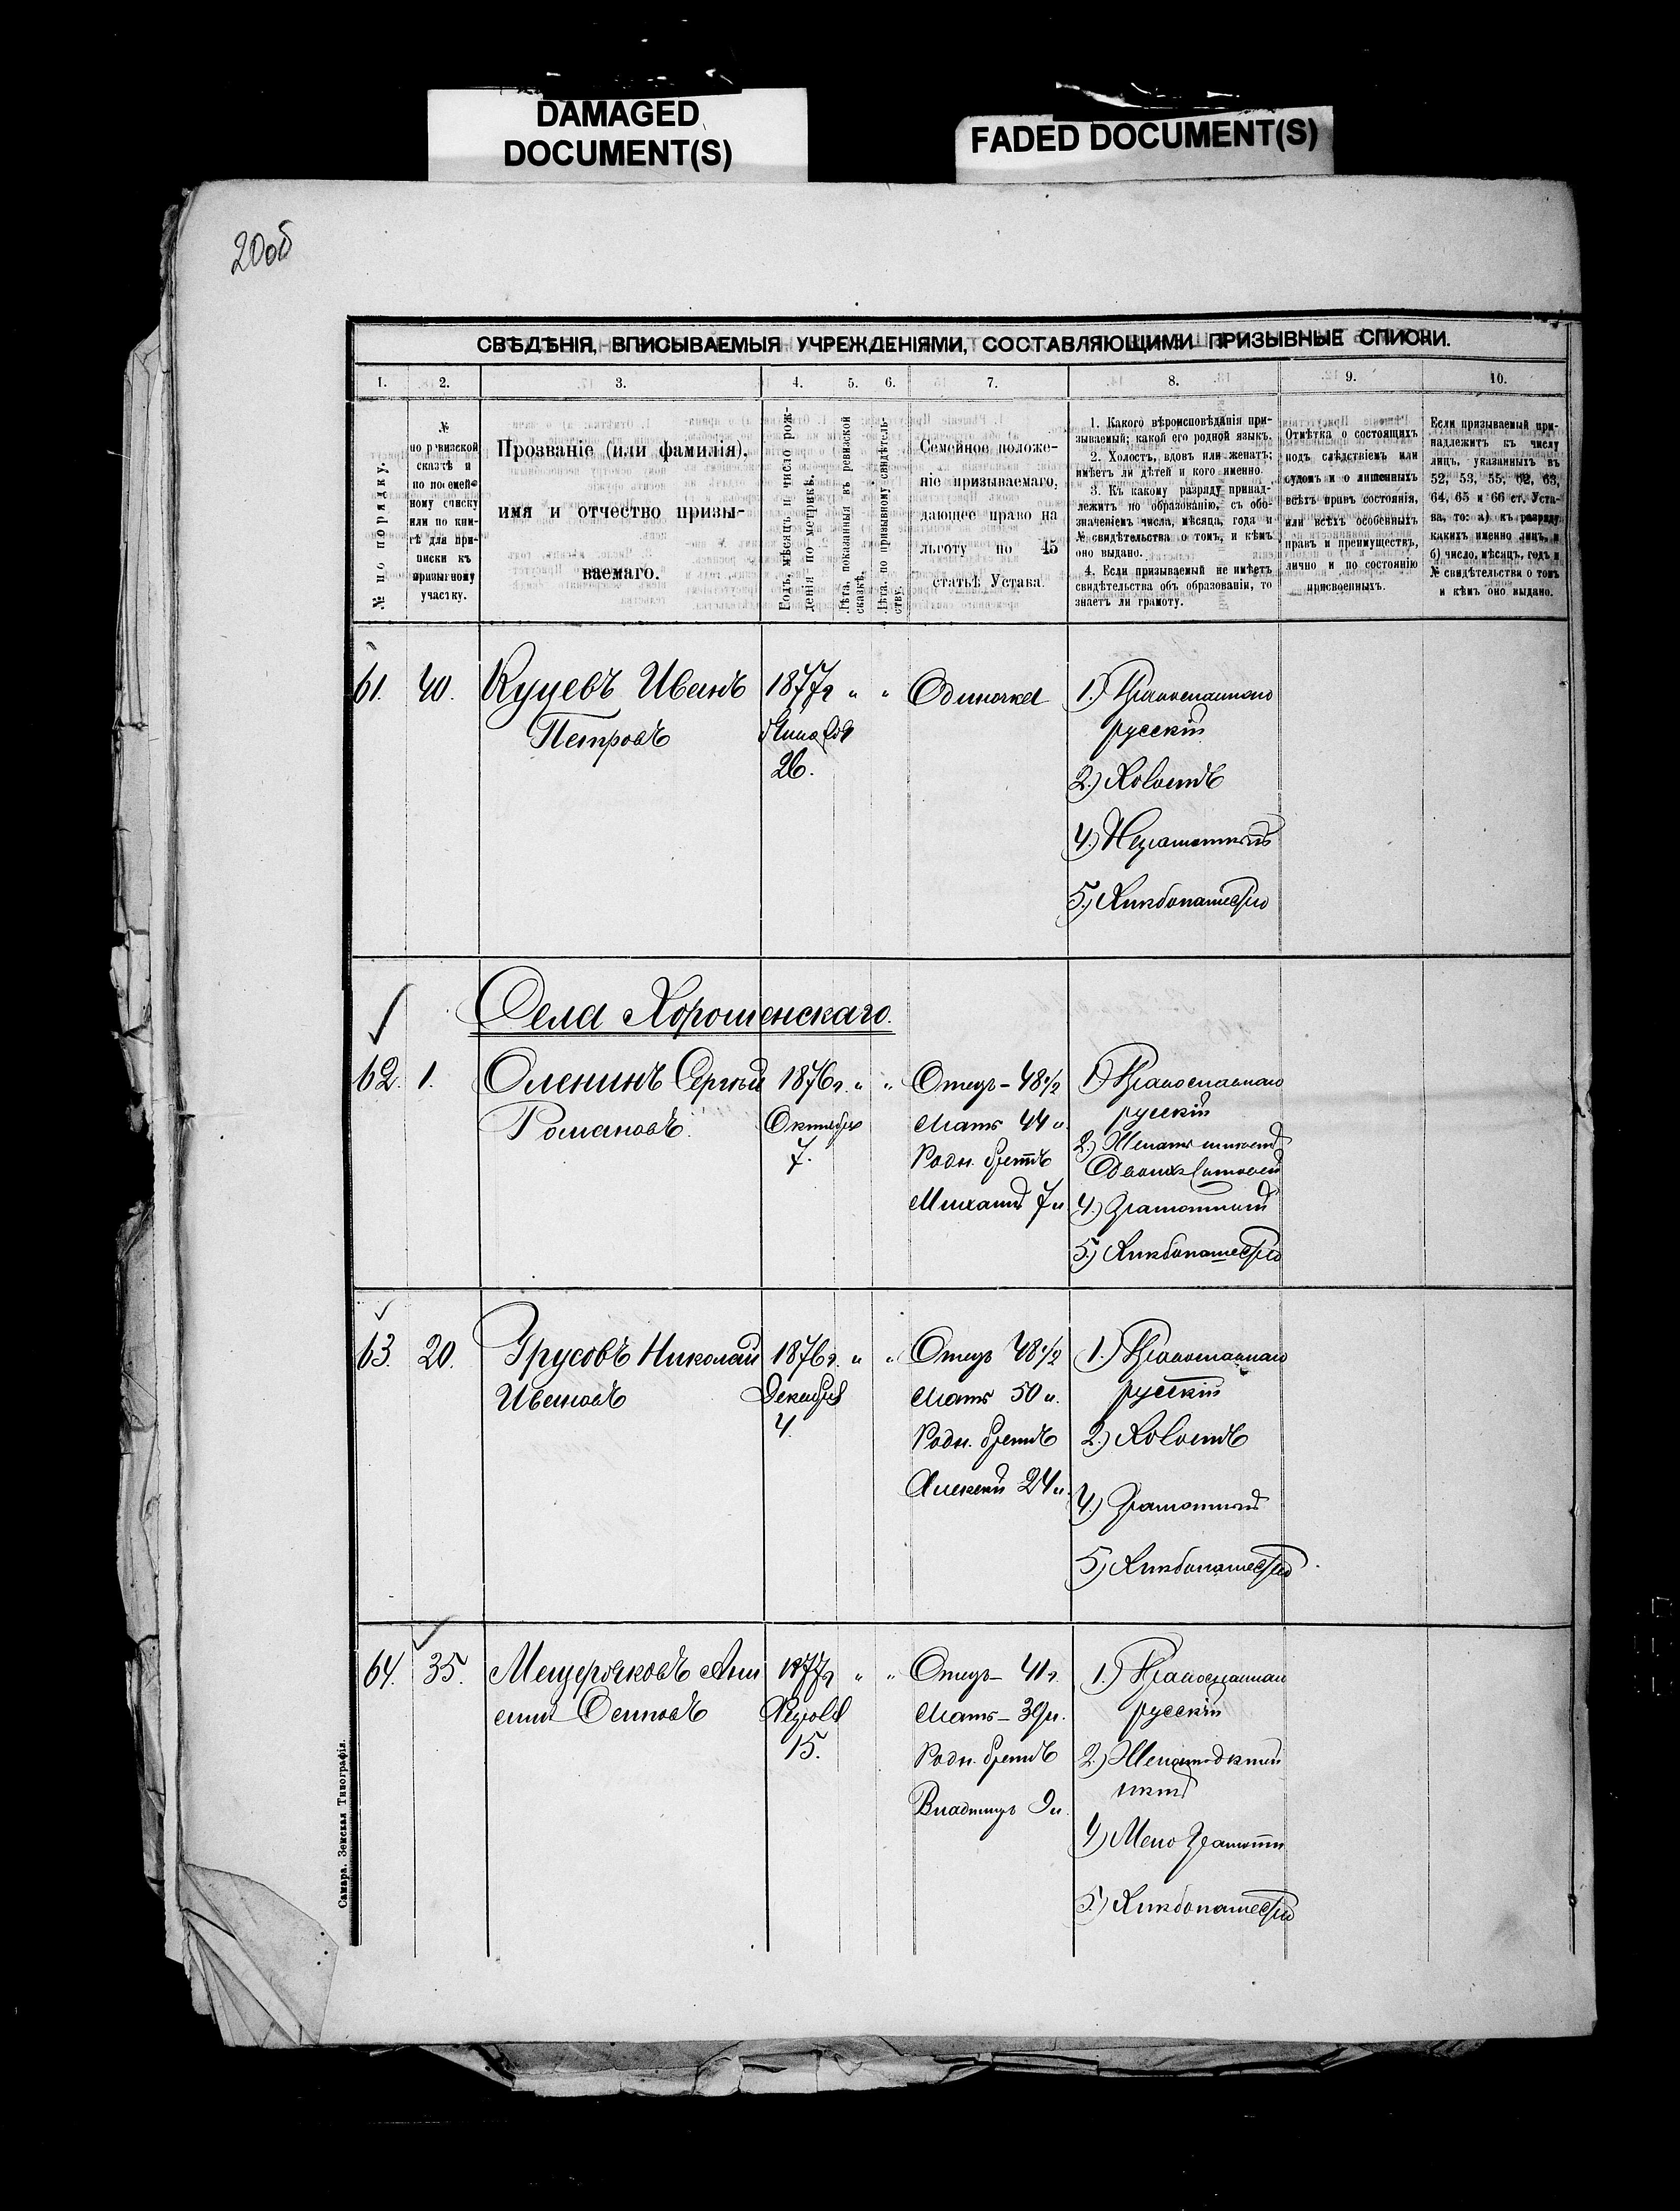 DAMAGED
DOCUMENT(S)
FADED DOCUMENT(S)
20об
СВѢДѢНІЯ, ВПИСЫВАЕМЫЯ УЧРЕЖДЕНІЯМИ, СОСТАВЛЯЮЩИМИ ПРИЗЫВНЫЕ СПИСКИ.
1. 2. 3. 4. 5. 6. 7. 8. 9. 10.
№ по порядку.
№
по ревизской
сказкѣ и
по посемей-
ному списку
или по кни-
гѣ для при-
писки къ
призывному
участку.
Прозваніе (или фамилія),
имя и отчество призы-
ваемаго.
Годъ, мѣсяцъ и число рож-
денія по метрикѣ.
Лѣта, показанныя въ ревизской
сказкѣ.
Лѣта, по призывному свидѣтель-
ству.
Семейное положе-
ніе призываемаго,
дающее право на
льготу по 45
статьѣ Устава.
1. Какого вѣроисповѣданія при-
зываемый; какой его родной языкъ.
2. Холостъ, вдовъ или женатъ;
имѣетъ ли дѣтей и кого именно.
3. Къ какому разряду принад-
лежитъ по образованію, съ обо-
значеніемъ числа, мѣсяца, года и
№ свидѣтельства о томъ, и кѣмъ
оно выдано.
4. Если призываемый не имѣетъ
свидѣтельства объ образованіи, то
знаетъ ли грамоту.
Отмѣтка о состоящихъ
подъ слѣдствіемъ или
судомъ и о лишенныхъ
всѣхъ правъ состоянія,
или всѣхъ особенныхъ
правъ и преимуществъ,
лично и по состоянію
присвоенныхъ.
Если призываемый при-
надлежитъ къ числу
лицъ, указанныхъ въ
52, 53, 55, 62, 63,
64, 65 и 66 ст. Уста-
ва, то: а) къ разряду
какихъ именно лицъ, и
б) число, мѣсяцъ, годъ и
№ свидѣтельства о томъ
и кѣмъ оно выдано.
61. 40. Куцевъ Иванъ 1877г " " Одиночка 1.) Православнаго
Петровъ
русскій
26.
2.) Холостъ
4.) Неграмотный
5.) Хлѣбопашество
Села Хорошенскаго.
62. 1. Оленинъ Сергѣй 1876г. " " Отецъ - 48 1/2 1.) Православнаго
Романовъ. Октября Мать 44 "
русскій
7. Родн. братъ
Михаилъ 7 " 4.) Грамотный
5.) Хлѣбопашество
63. 20. Урусовъ Николай 1876г. " " Отецъ 48 1/2 1.) Православнаго
Ивановъ Декабря Мать 50 "
русскій
4. Родн. братъ 2.) Холостъ
Алексѣй 24 "
4.) Грамотный
5) Хлѣбопашество
64. 35. Мещеряковъ 1877г " " Отецъ - 41 г. 1.) Православнаго
Осиповъ Мать - 39 "
русскій
15. Родн. братъ
Владиміръ 9 "
4) Мало грамотн
5.) Хлѣбопашество
Самара. Земская Типографія.